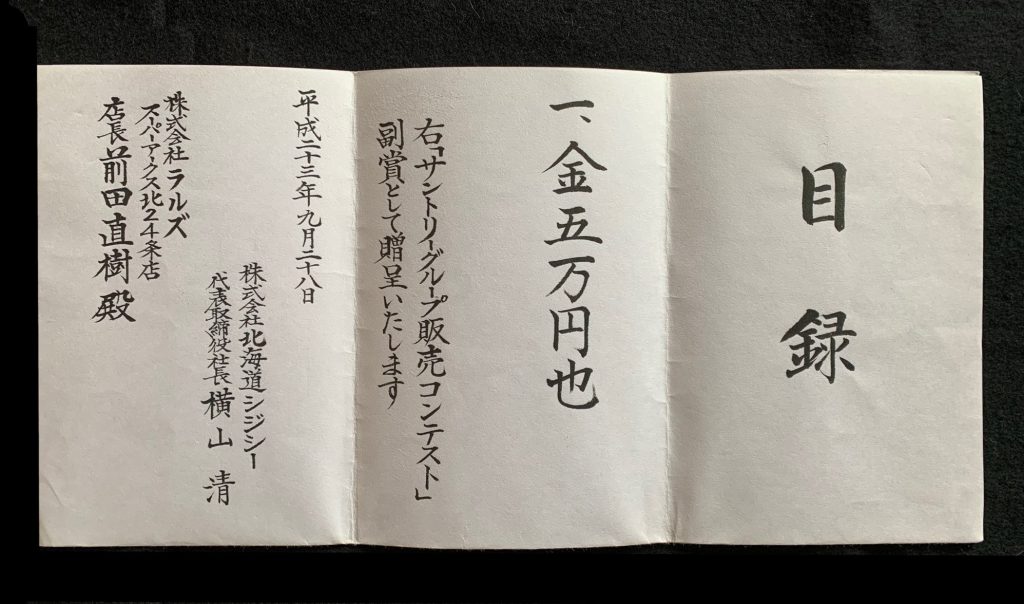 目録
一、金五万円也
右「サントリーグループ販売コンテスト」
副賞として贈呈いたします
平成二十三年九月二十八日
株式会社北海道シジシー
代表取締役社長 横山 清
株式会社ラルズ
スーパーアークス北24条店
店長 前田直樹殿